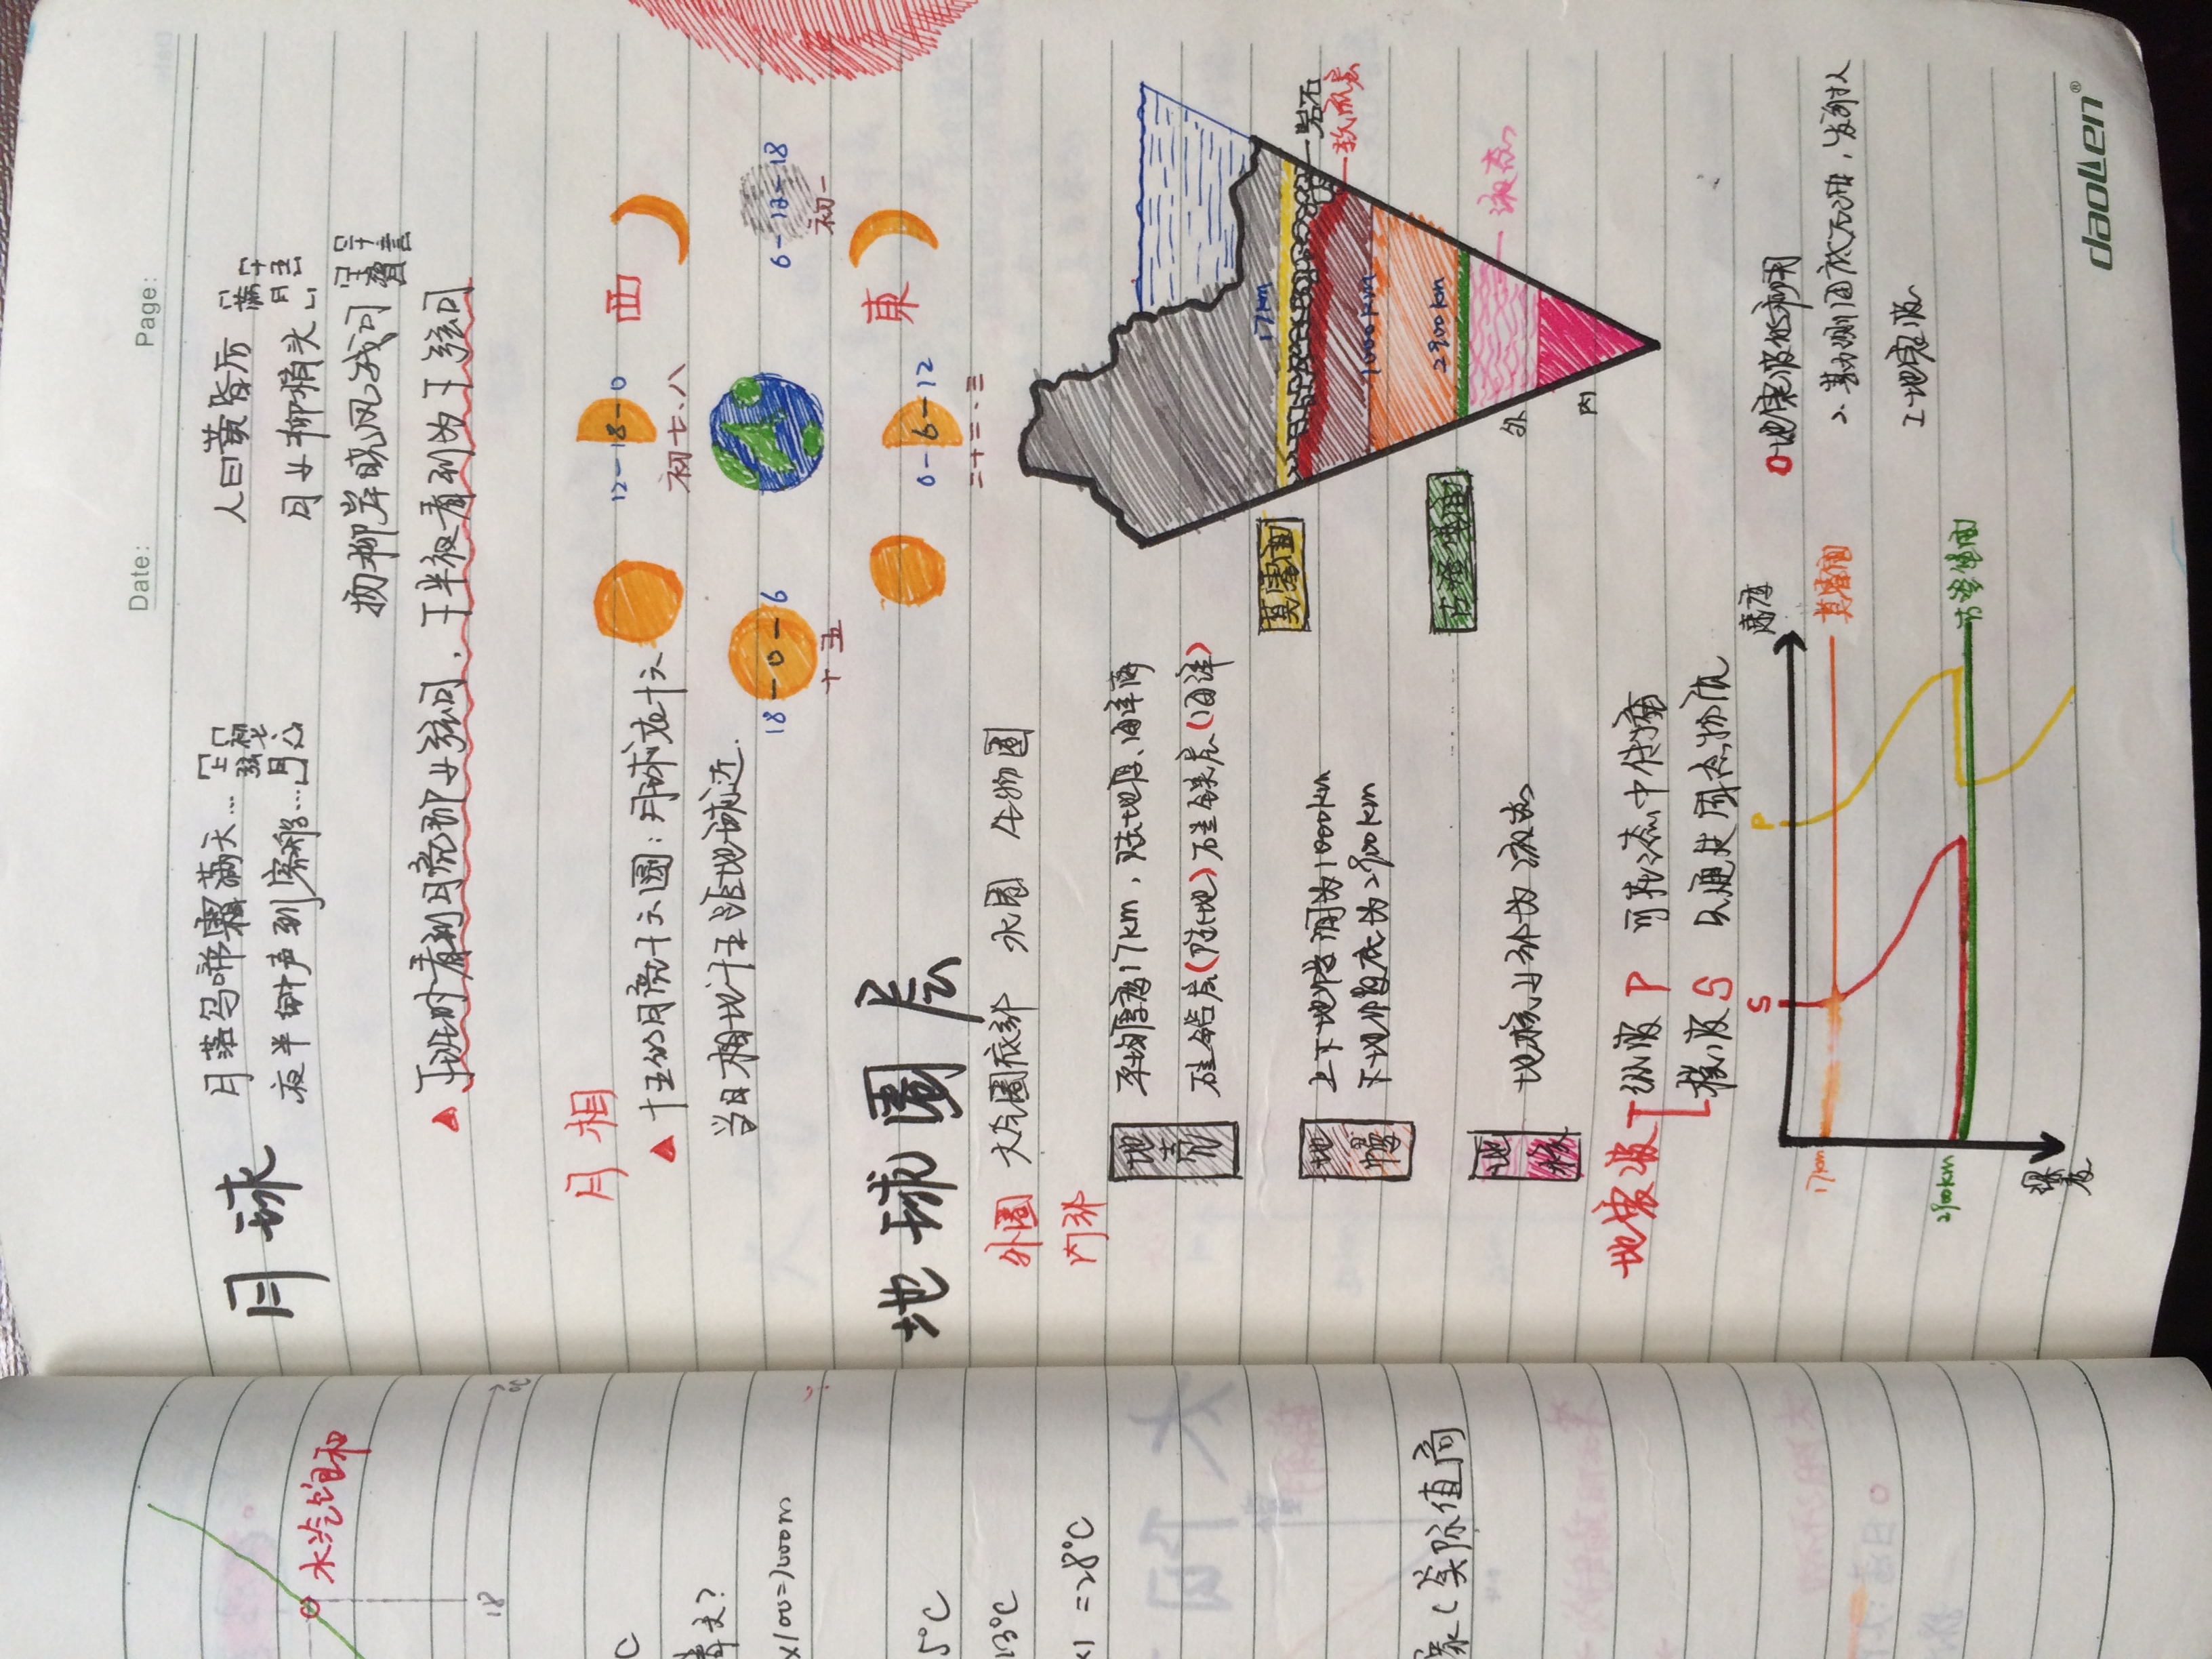 水汽饱和
18
℃
C
青天?
×100=1000m
5℃
13℃
×1 =28℃
象(实际值高
Date: Page:
月球
月落乌啼霜满天…「上弦月」「初七、八」
夜半钟声到客船…
人曰黄昏后 「满月」「十五」
月上柳梢头
杨柳岸晓风残月
▲ 下班时看到月亮即上弦月,下半夜看到为下弦月
月相
▲ 十五的月亮十六圆:月球在十六
当日相比十五距地球近.
12-18-0
初七、八
西
18-0-6
十五
6-12-18
初一
東
0-6-12
二十二、三
地球圈层
外圈 大气圈底部 水圈 生物圈
内部
地壳
平均厚度17km,陆地厚、海洋薄
硅铝层(陆地)硅镁层(海洋)
地幔
上下地幔间为1000km
下地幔底为2900km
地核
地核上部为液态
莫霍面
古登堡面
17km
岩石
软流层
1000km
2900km
液态
外
内
地震波
纵波 P 可在液态中传播
横波 S 只通过固态物质
S P 速度
17km 莫霍面
2900km 古登堡面
深度
地震波的利用
2. 勘测海底石油,发射人
工地震波
daolen®